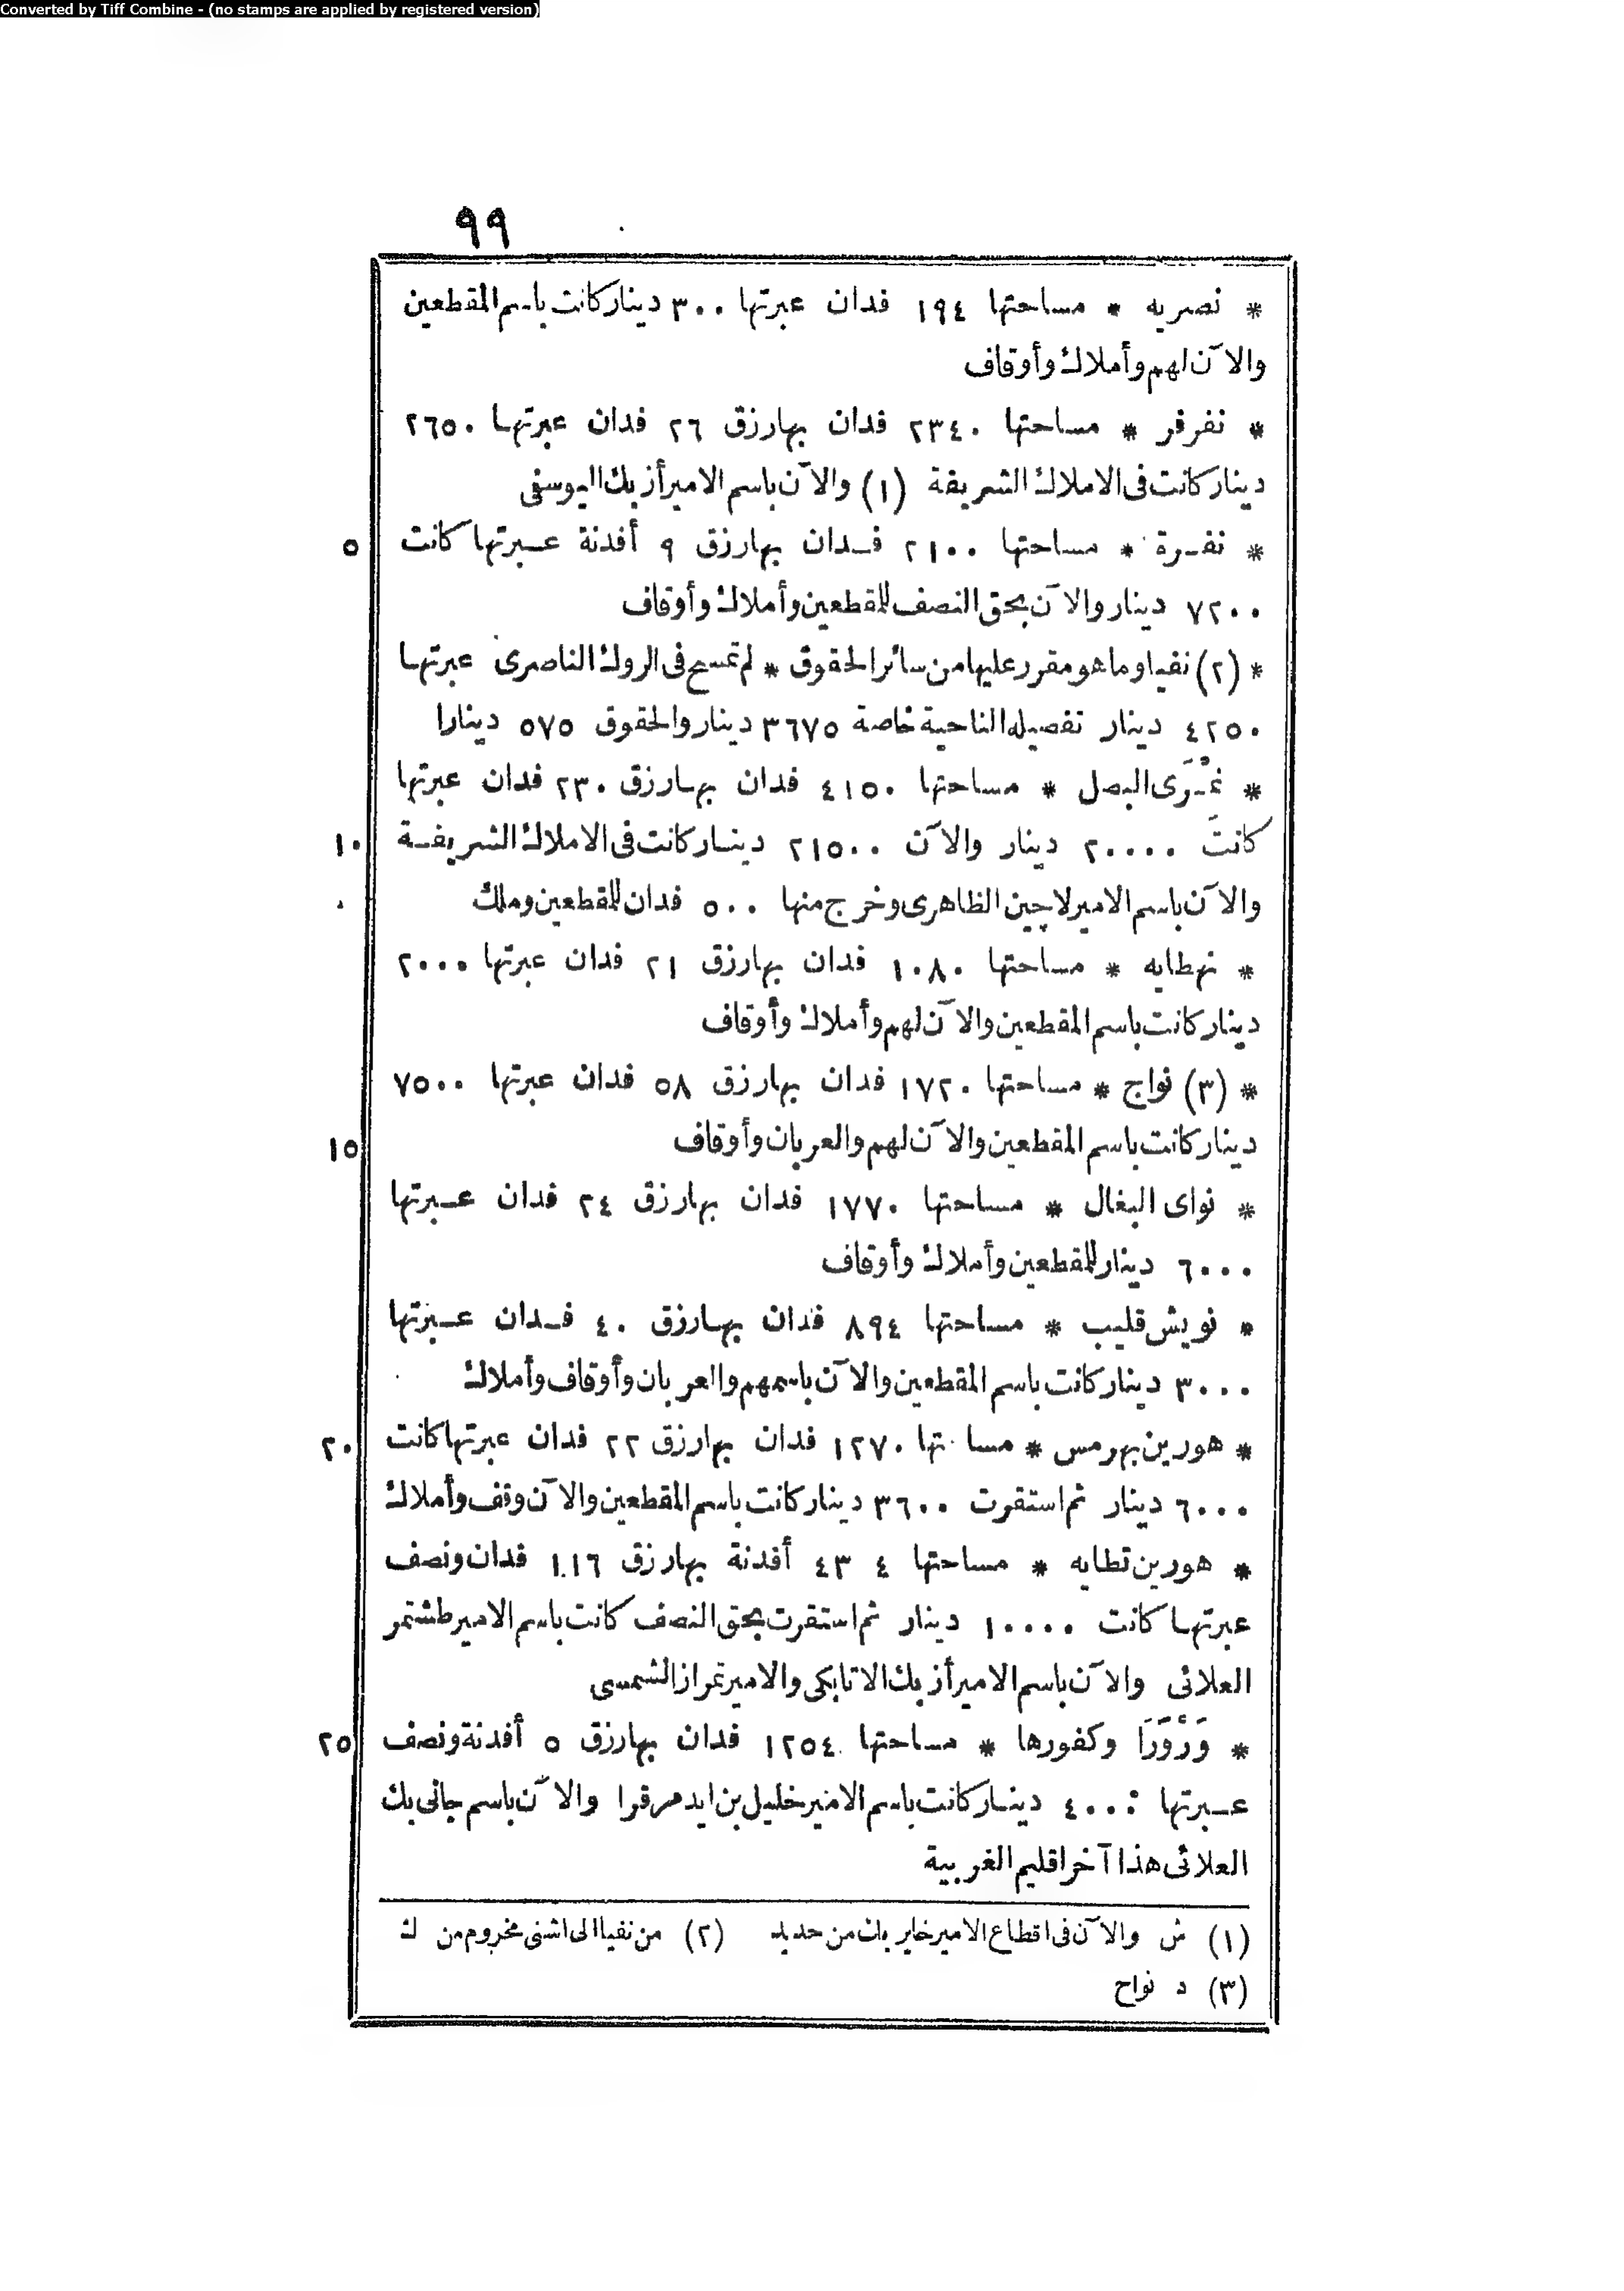 Converted by Tiff Combine - (no stamps are applied by registered version)
٩٩
* نصريه * مساحتها ١٩٤ فدان عبرتها ٣٠٠ دينار كانت باسم المقطعين
والآن لهم وأملاك وأوقاف
* نفرفر * مساحتها ٢٣٤٠ فدان بهارزق ٢٦ فدان عبرتها ٢٦٥٠
دينار كانت فى الاملاك الشريفة (١) والآن باسم الامير أزبك اليوسفى
* نفرة * مساحتها ٢١٠٠ فدان بهارزق ٩ أفدنة عبرتها كانت ٥
٧٢٠٠ دينار والآن بحق النصف للمقطعين وأملاك وأوقاف
* (٢) نفيا وما هو مقرر عليها من سائر الحقوق * لم تمسح فى الروك الناصرى عبرتها
٤٢٥٠ دينار تفصيله الناحية خاصة ٣٦٧٥ دينار والحقوق ٥٧٥ دينارا
* نمرى البصل * مساحتها ٤١٥٠ فدان بهارزق ٢٣٠ فدان عبرتها
كانت ٢٠٠٠٠ دينار والآن ٢١٥٠٠ دينار كانت فى الاملاك الشريفة ١٠
والآن باسم الامير لاچين الظاهرى وخرج منها ٥٠٠ فدان للمقطعين وملك
* نهطايه * مساحتها ١٠٨٠ فدان بهارزق ٢١ فدان عبرتها ٢٠٠٠
دينار كانت باسم المقطعين والآن لهم وأملاك وأوقاف
* (٣) نواج * مساحتها ١٧٢٠ فدان بهارزق ٥٨ فدان عبرتها ٧٥٠٠
دينار كانت باسم المقطعين والآن لهم والعربان وأوقاف ١٥
* نواى البغال * مساحتها ١٧٧٠ فدان بهارزق ٢٤ فدان عبرتها
٦٠٠٠ دينار للمقطعين وأملاك وأوقاف
* نويش قليب * مساحتها ٨٩٤ فدان بهارزق ٤٠ فدان عبرتها
٣٠٠٠ دينار كانت باسم المقطعين والآن باسمهم والعربان وأوقاف وأملاك
* هورين بهرمس * ١٢٧٠ فدان بهارزق ٢٢ فدان عبرتها كانت ٢٠
٦٠٠٠ دينار ثم استقرت ٣٦٠٠ دينار كانت باسم المقطعين والآن وقف وأملاك
* هورين تطايه * مساحتها ٤ ٤٣ أفدنة بهارزق فدان ونصف
عبرتها كانت ١٠٠٠٠ دينار ثم استقرت بحق النصف كانت باسم الامير طشتمر
العلائى والآن باسم الامير أزبك الاتابكى والامير تمراز الشمسى
* وَرْوَرَا وكفورها * مساحتها ١٢٥٤ فدان بهارزق ٥ أفدنة ونصف ٢٥
عبرتها ٤٠٠٠ دينار كانت باسم الامير خليل بن ايدمر قرا والآن باسم جانى بك
العلائى هذا آخر اقليم الغربية
(١) ش والآن فى اقطاع الامير خاير بك من حديد (٢) من نفيا الى اشنى مخروم من ك
(٣) د نواح